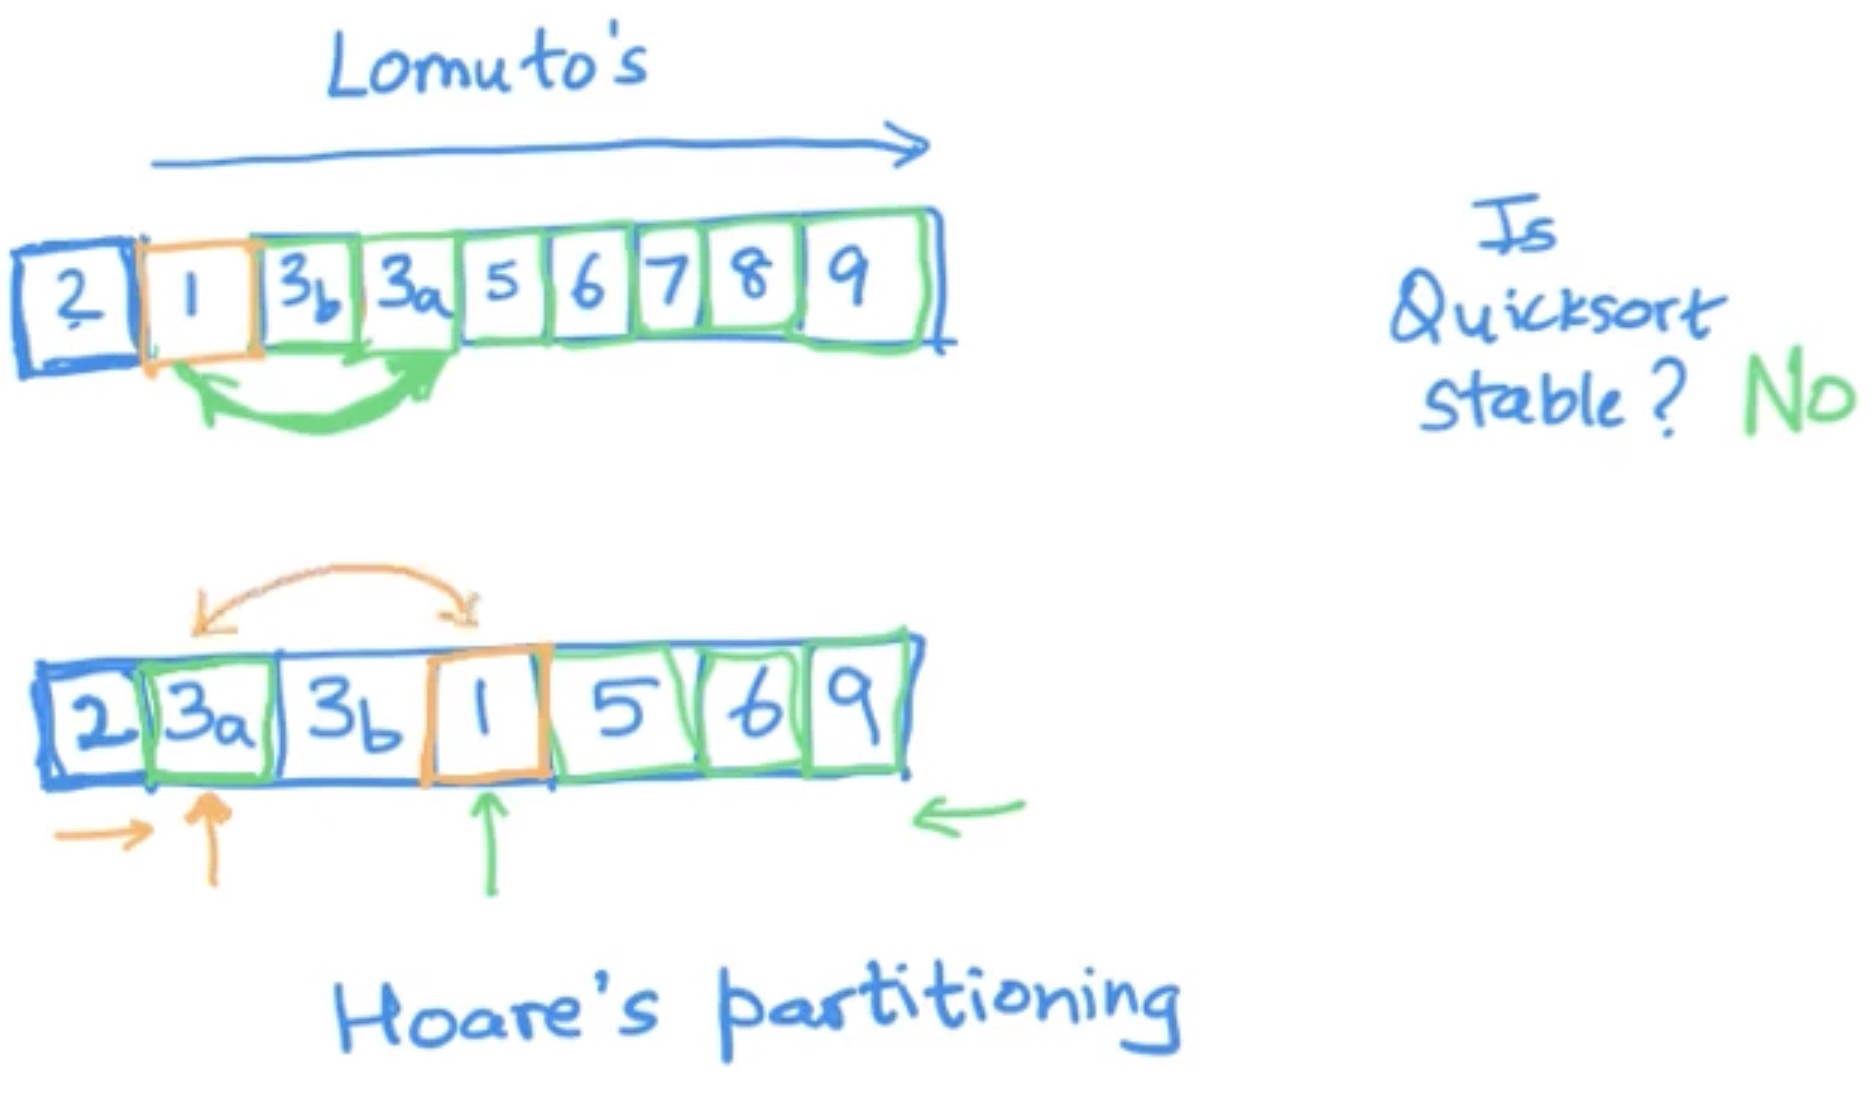 Lomuto's
2 1 3b 3a 5 6 7 8 9
Is
Quicksort
stable? No
2 3a 3b 1 5 6 9
Hoare's partitioning